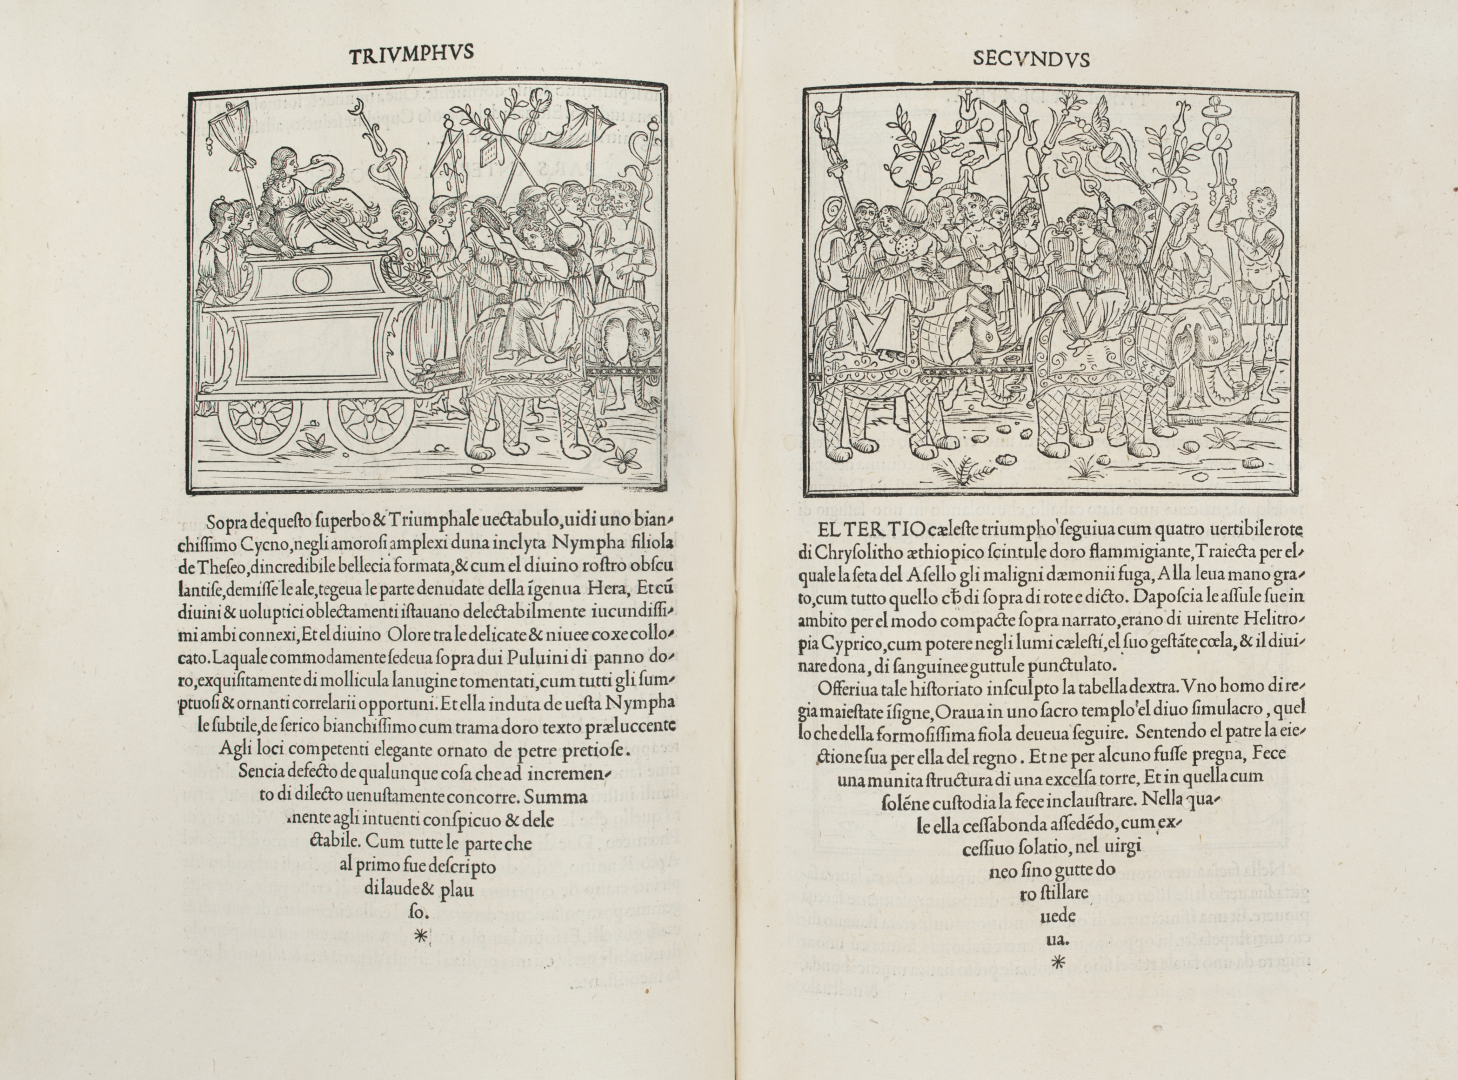 TRIVMPHVS
Sopra de questo superbo & Triumphale uectabulo, uidi uno bian-
chissimo Cycno, negli amorosi amplexi duna inclyta Nympha filiola
de Theseo, dincredibile bellecia formata, & cum el diuino rostro obscu
lantise, demisse le ale, tegeua le parte denudate della īgenua Hera, Et cū
diuini & uoluptici oblectamenti istauano delectabilmente iucundissi-
mi ambi connexi, Et el diuino Olore tra le delicate & niuee coxe collo-
cato. Laquale commodamente sedeua sopra dui Puluini di panno do-
ro, exquisitamente di mollicula lanugine tomentati, cum tutti gli sum-
ptuosi & ornanti correlarii opportuni. Et ella induta de uesta Nympha
le subtile, de serico bianchissimo cum trama doro texto præluccente
Agli loci competenti elegante ornato de petre pretiose.
Sencia defecto de qualunque cosa che ad incremen-
to di dilecto uenustamente concorre. Summa
mente agli intuenti conspicuo & dele
ctabile. Cum tutte le parte che
al primo fue descripto
di laude & plau
so.
*
SECVNDVS
EL TERTIO cæleste triumpho seguiua cum quatro uertibile rote
di Chrysolitho æthiopico scintule doro flammigiante, Traiecta per el-
quale la seta del Asello gli maligni dæmonii fuga, Alla leua mano gra-
to, cum tutto quello cħ di sopra di rote e dicto. Daposcia le assule sue in
ambito per el modo compacte sopra narrato, erano di uirente Helitro-
pia Cyprico, cum potere negli lumi cælesti, el suo gestāte cœla, & il diui-
nare dona, di sanguinee guttule punctulato.
Offeriua tale historiato insculpto la tabella dextra. Vno homo di re-
gia maiestate īsigne, Oraua in uno sacro templo el diuo simulacro, quel
lo che della formosissima fiola deueua seguire. Sentendo el patre la eie-
ctione sua per ella del regno. Et ne per alcuno fusse pregna, Fece
una munita structura di una excelsa torre, Et in quella cum
solēne custodia la fece inclaustrare. Nella qua-
le ella cessabonda assedēdo, cum ex-
cessiuo solatio, nel uirgi
neo sino gutte do
ro stillare
uede
ua.
*